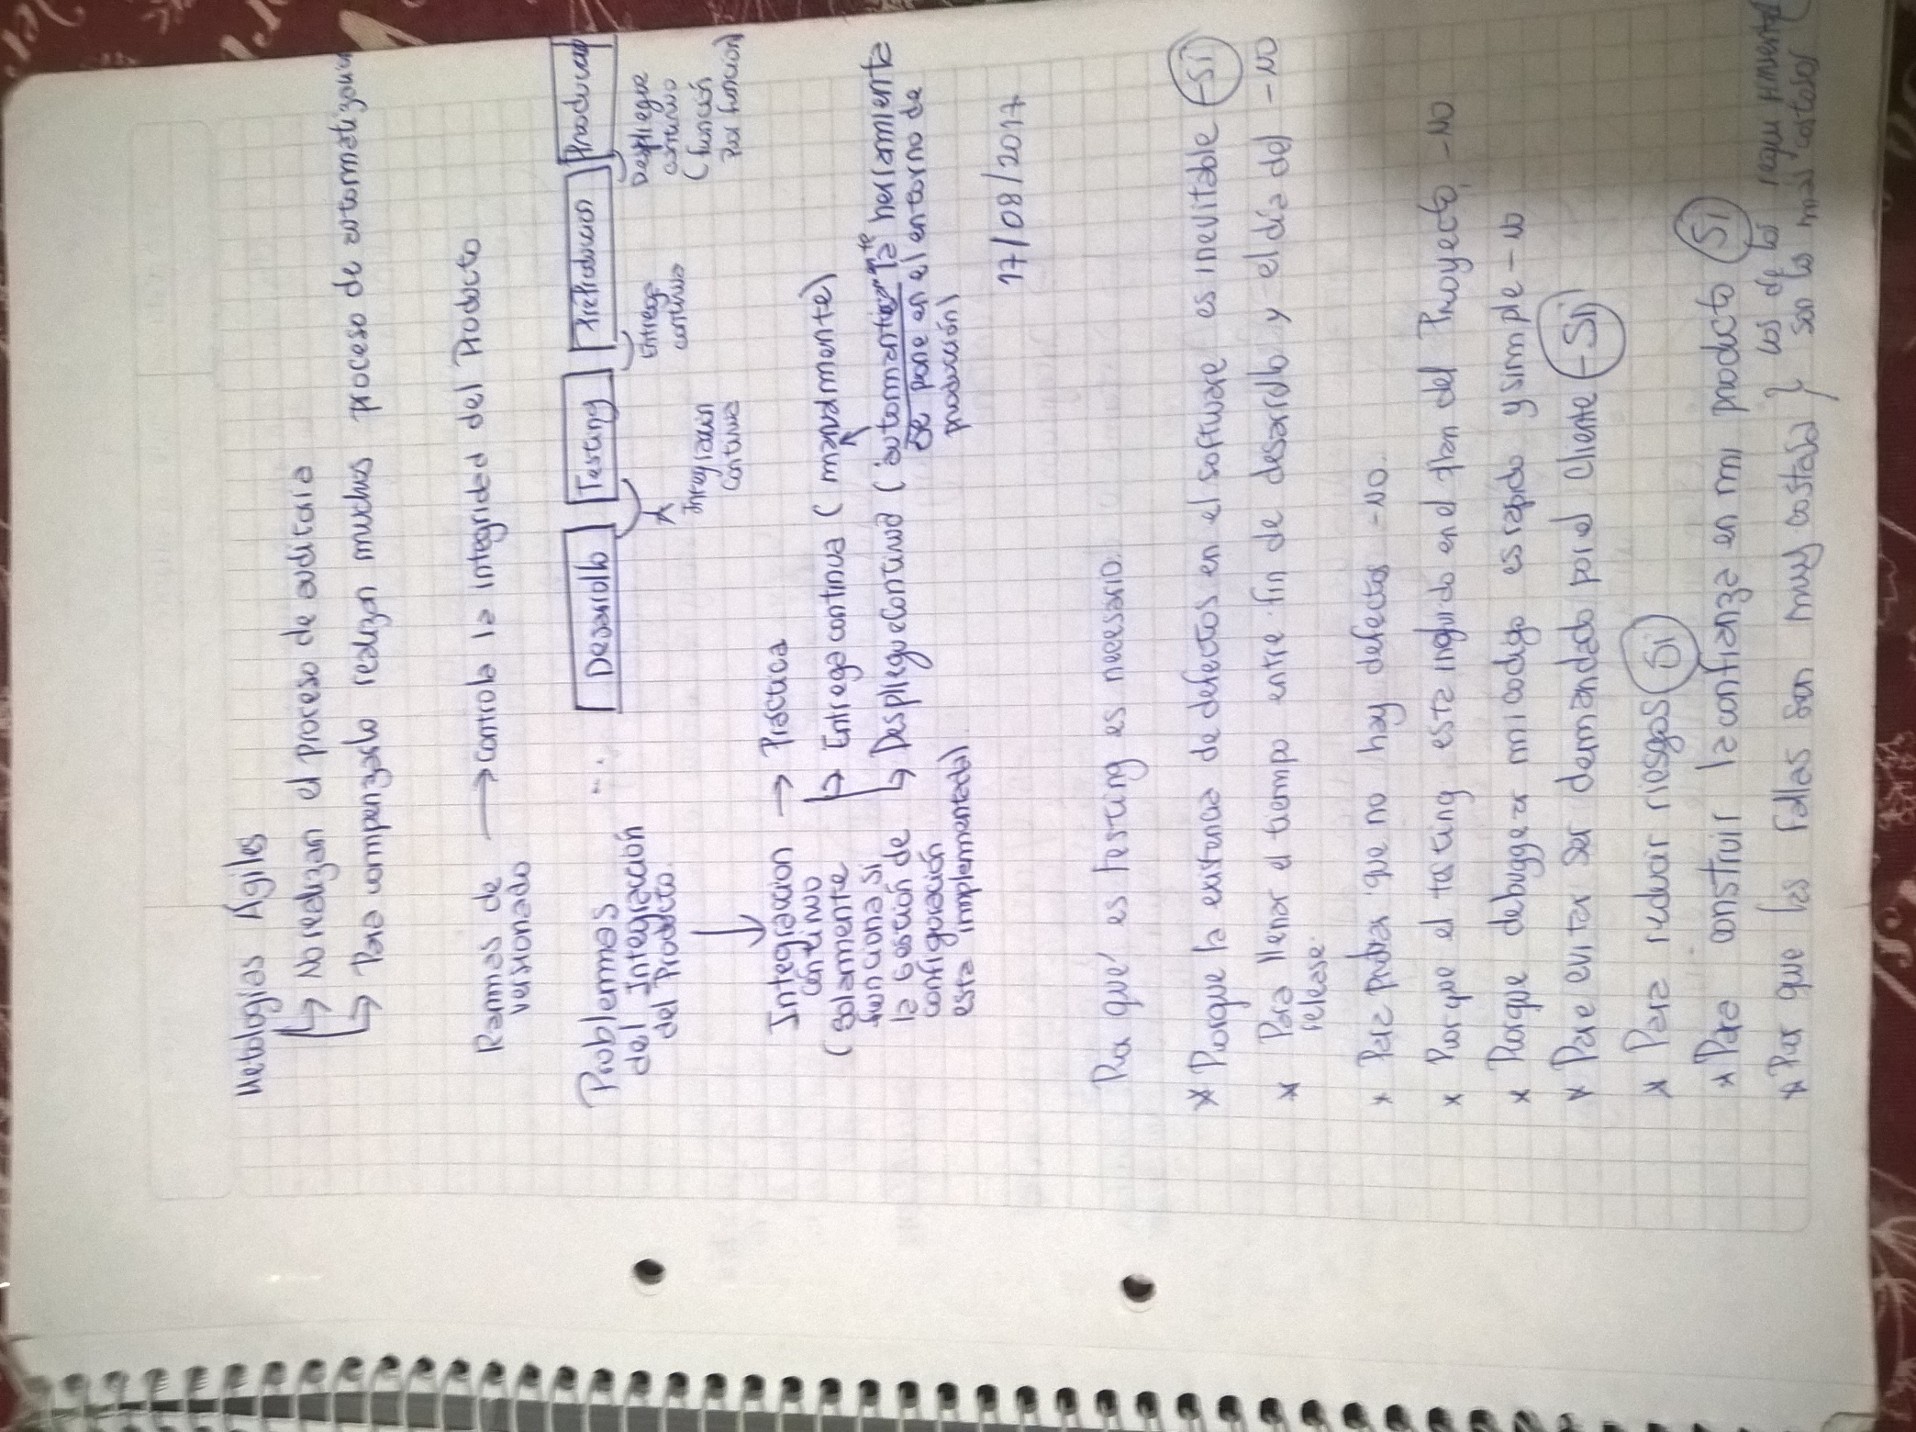 Metologías Ágiles
No realizan el proceso de auditoria
Para compenzarlo realizan muchos proceso de automatización
Rammas de → controla la integridad del Producto
versionado
Problemmas
del Integracción
del Producto.
Desarrollo Testing PreProduccion Produccion
Integracion
continua
Entrega
continua
Despliegue
continuo
(función
por funcion)
Integraccion → Práctica
continuo
(solamente
funciona si
la Gestión de
configuración
esta implementada)
Entrega continua (manualmente)
Despliegue Continuo (automaticamente la herramienta
se pone en el entorno de
producción)
17/08/2017
Por qué es testing es necesario.
* Porque la existencia de defectos en el software es inevitable - Si
* Para llenar el tiempo entre fin de desarrollo y el día del - NO
release.
* Para probar que no hay defectos - NO.
* Porque el testing esta incluido en el plan del Proyecto, - NO
* Porque debuggear mi codigo es rapido y simple - NO
* Para evitar ser demandado por el cliente - Si
* Para reducir riesgos Si
* Para construir la confianza en mi producto Si
* Por que las fallas son muy costosa } Los de los requerimientos
son los mas costosos